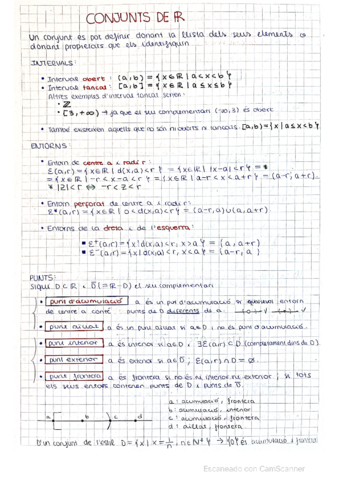 CONJUNTS DE ℝ
Un conjunt es pot definir donant la llista dels seus elements o
donant propietats que els identifiquin
INTERVALS
• Interval obert: (a,b) = {x∈ℝ | a<x<b}
• Interval tancat: [a,b] = {x∈ℝ | a≤x≤b}
Altres exemples d'interval tancat serien:
• ℤ
• [3,+∞) → ja que el seu complementari (-∞,3) és obert
• També existeixen aquells que no són ni oberts ni tancats: [a,b) = {x | a≤x<b}
ENTORNS
• Entorn de centre a i radi r:
E(a,r) = {x∈ℝ | d(x,a)<r} = {x∈ℝ | |x-a|<r} = *
= {x∈ℝ | -r<x-a<r} = {x∈ℝ | a-r<x<a+r} = (a-r, a+r)
* |z|<r ⇔ -r<z<r
• Entorn perforat de centre a i radi r:
E*(a,r) = {x∈ℝ | 0<d(x,a)<r} = (a-r,a)∪(a,a+r)
• Entorns de la dreta i de l'esquerra:
• E⁺(a,r) = {x | d(x,a)<r, x>a} = (a, a+r)
• E⁻(a,r) = {x | d(x,a)<r, x<a} = (a-r, a)
PUNTS:
Sigui D⊂ℝ i D̅ (=ℝ-D) el seu complementari:
• punt d'acumulació a és un punt d'acumulació si qualsevol entorn
de centre a conté punts de D diferents de a
• punt aïllat: a és un punt aïllat si a∈D i no és punt d'acumulació.
• punt interior a és interior si a∈D i ∃E(a,r)⊂D (completament dins de D).
• punt exterior a és exterior si a∈D̅, E(a,r)∩D=∅.
• punt frontera a és frontera si no és ni interior ni exterior, si tots
els seus entorns contenen punts de D i punts de D̅.
a: acumulació, frontera
b: acumulació, interior
c: acumulació, frontera
d: aïllat, frontera
a b c d
D={x | x=1/n, n∈ℕ*} → {0} és acumulació i frontera
Escaneado con CamScanner